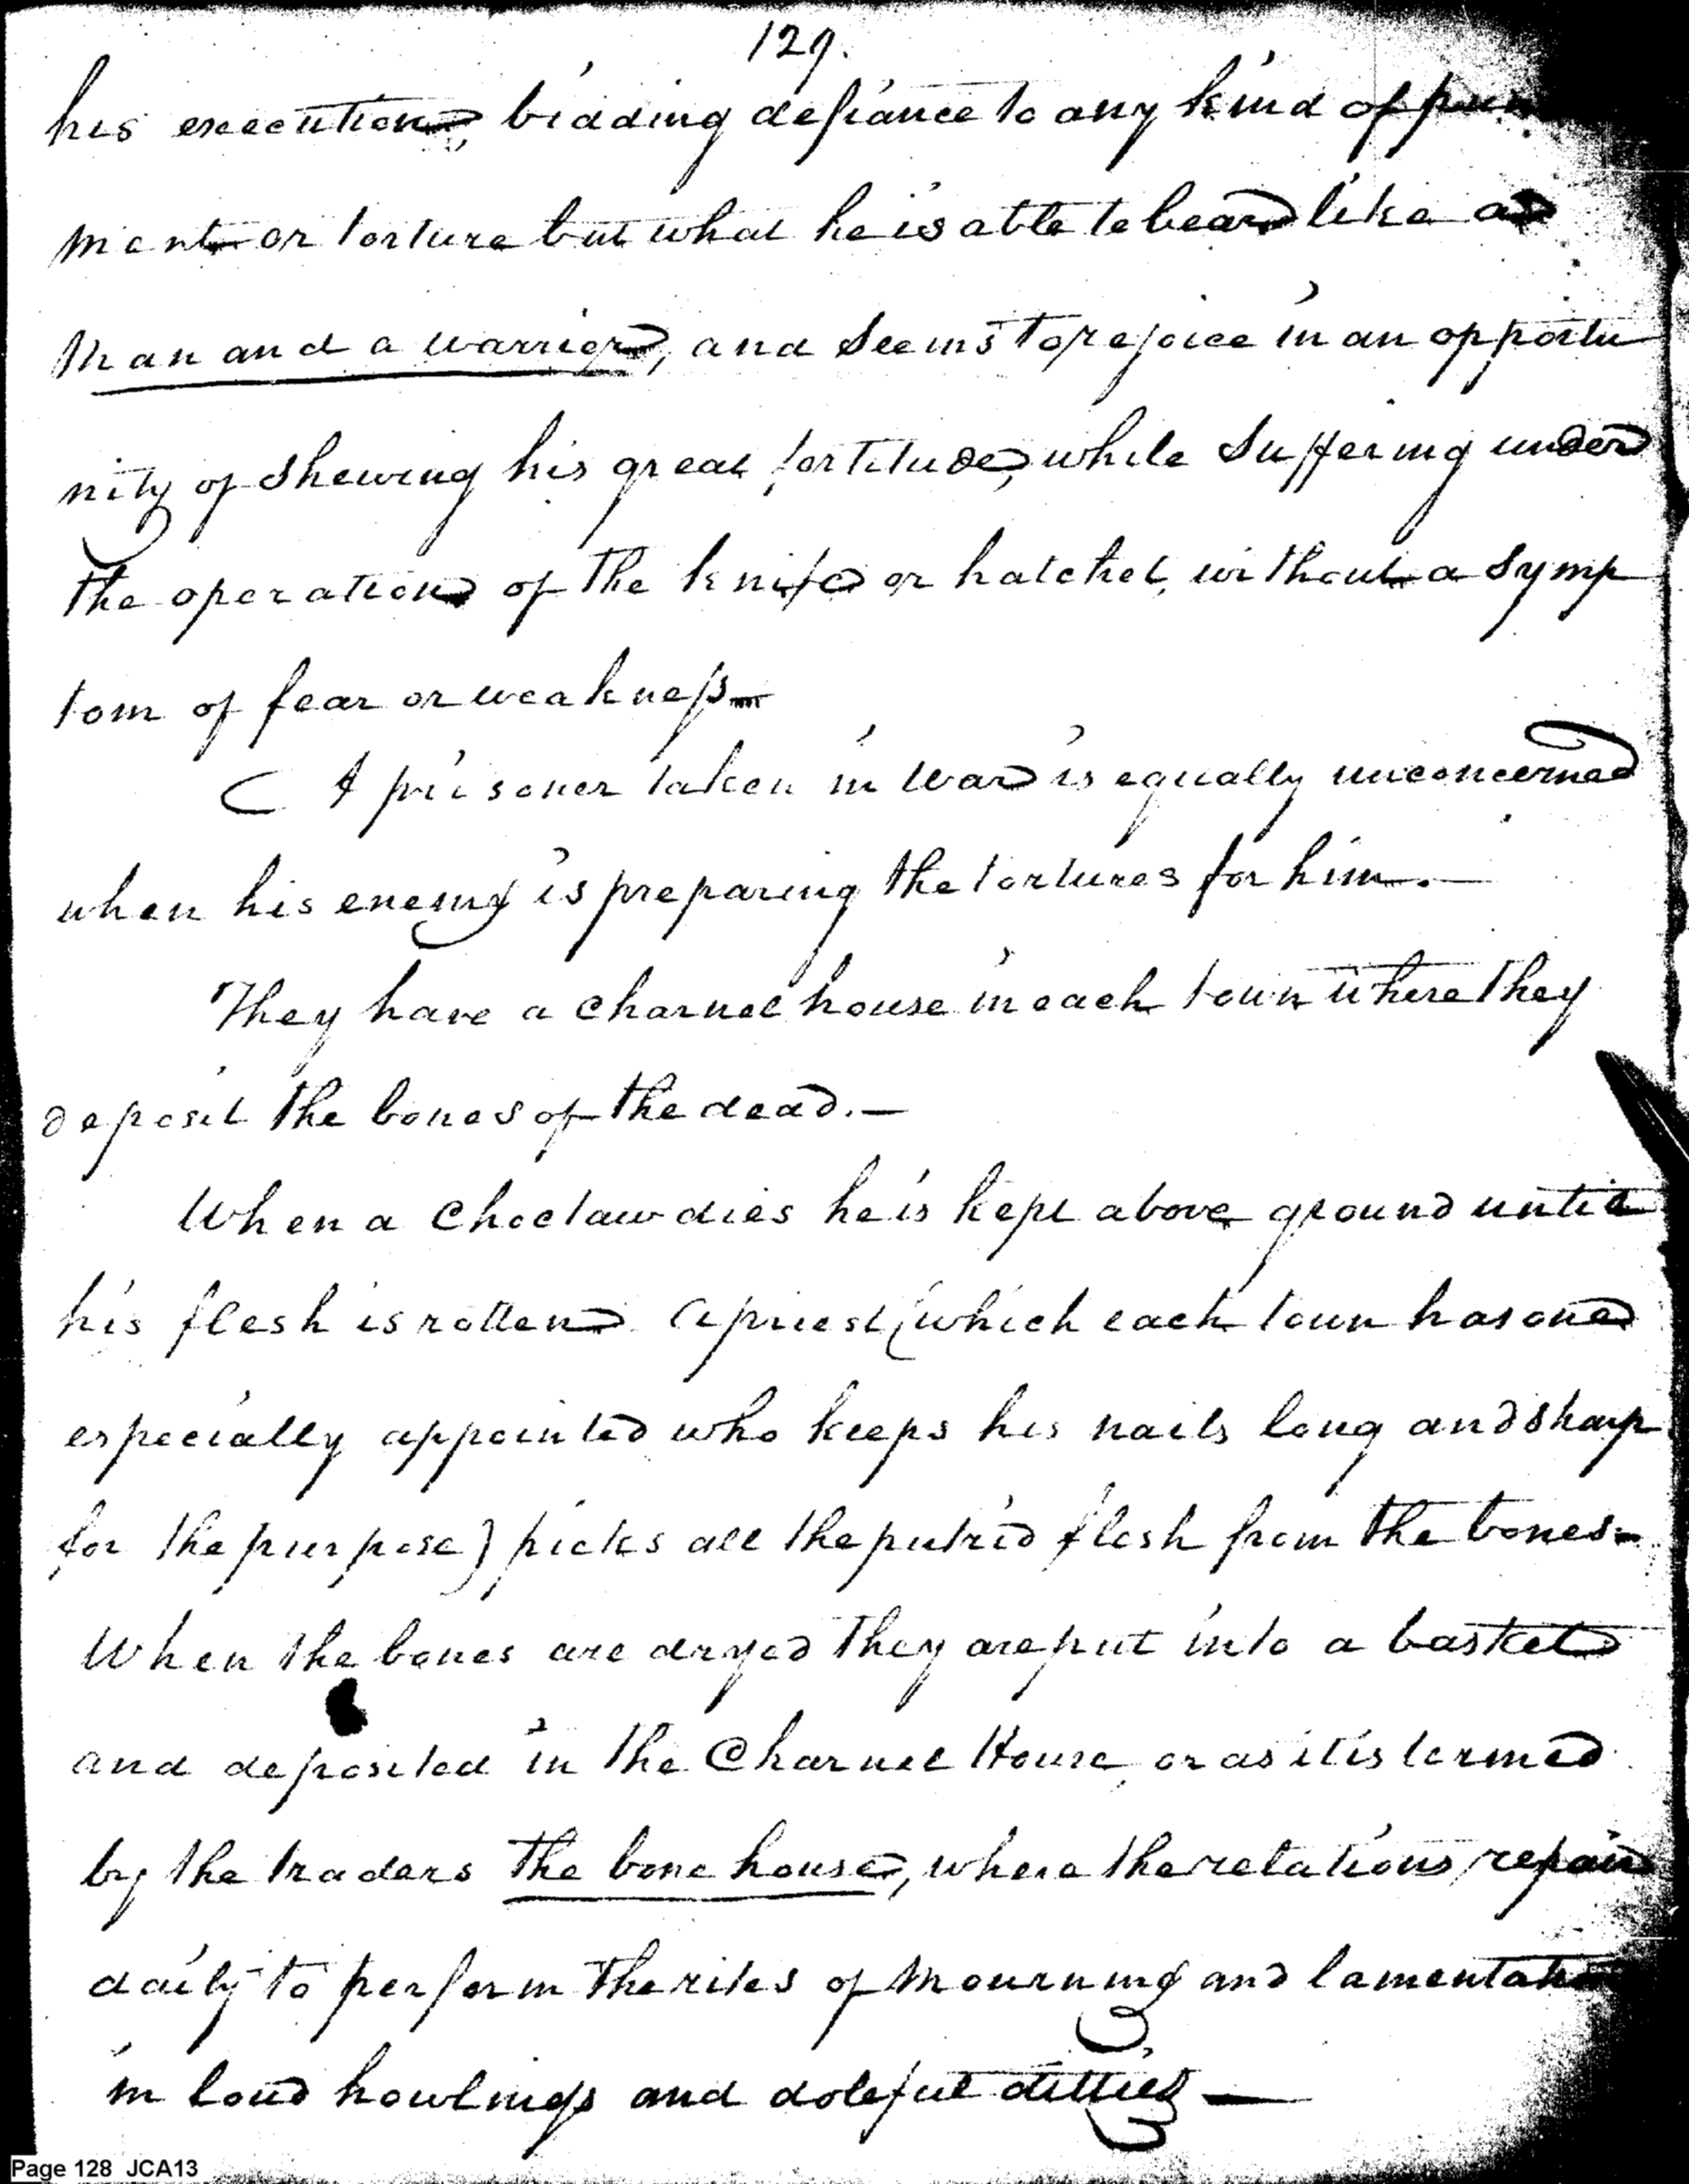 129.
his execution, bidding defiance to any kind of pun
ment or torture but what he is able to bear like a
man and a warrior, and seems to rejoice in an opportu
nity of shewing his great fortitude, while suffering under
the operation of the knife or hatchet, without a symp
tom of fear or weakness
A prisoner taken in war is equally unconcerned
when his enemy is preparing the tortures for him.—
They have a charnel house in each town where they
deposit the bones of the dead.—
When a Choctaw dies he is kept above ground until
his flesh is rotten A priest (which each town has one
especially appointed who keeps his nails long and sharp
for the purpose) picks all the putrid flesh from the bones-
When the bones are dryed they are put into a basket
and deposited in the Charnel House, or as it is termed
by the traders the bone house, where the relations repair
daily to perform the rites of mourning and lamentati
in loud howlings and doleful ditties —
Page 128 JCA13